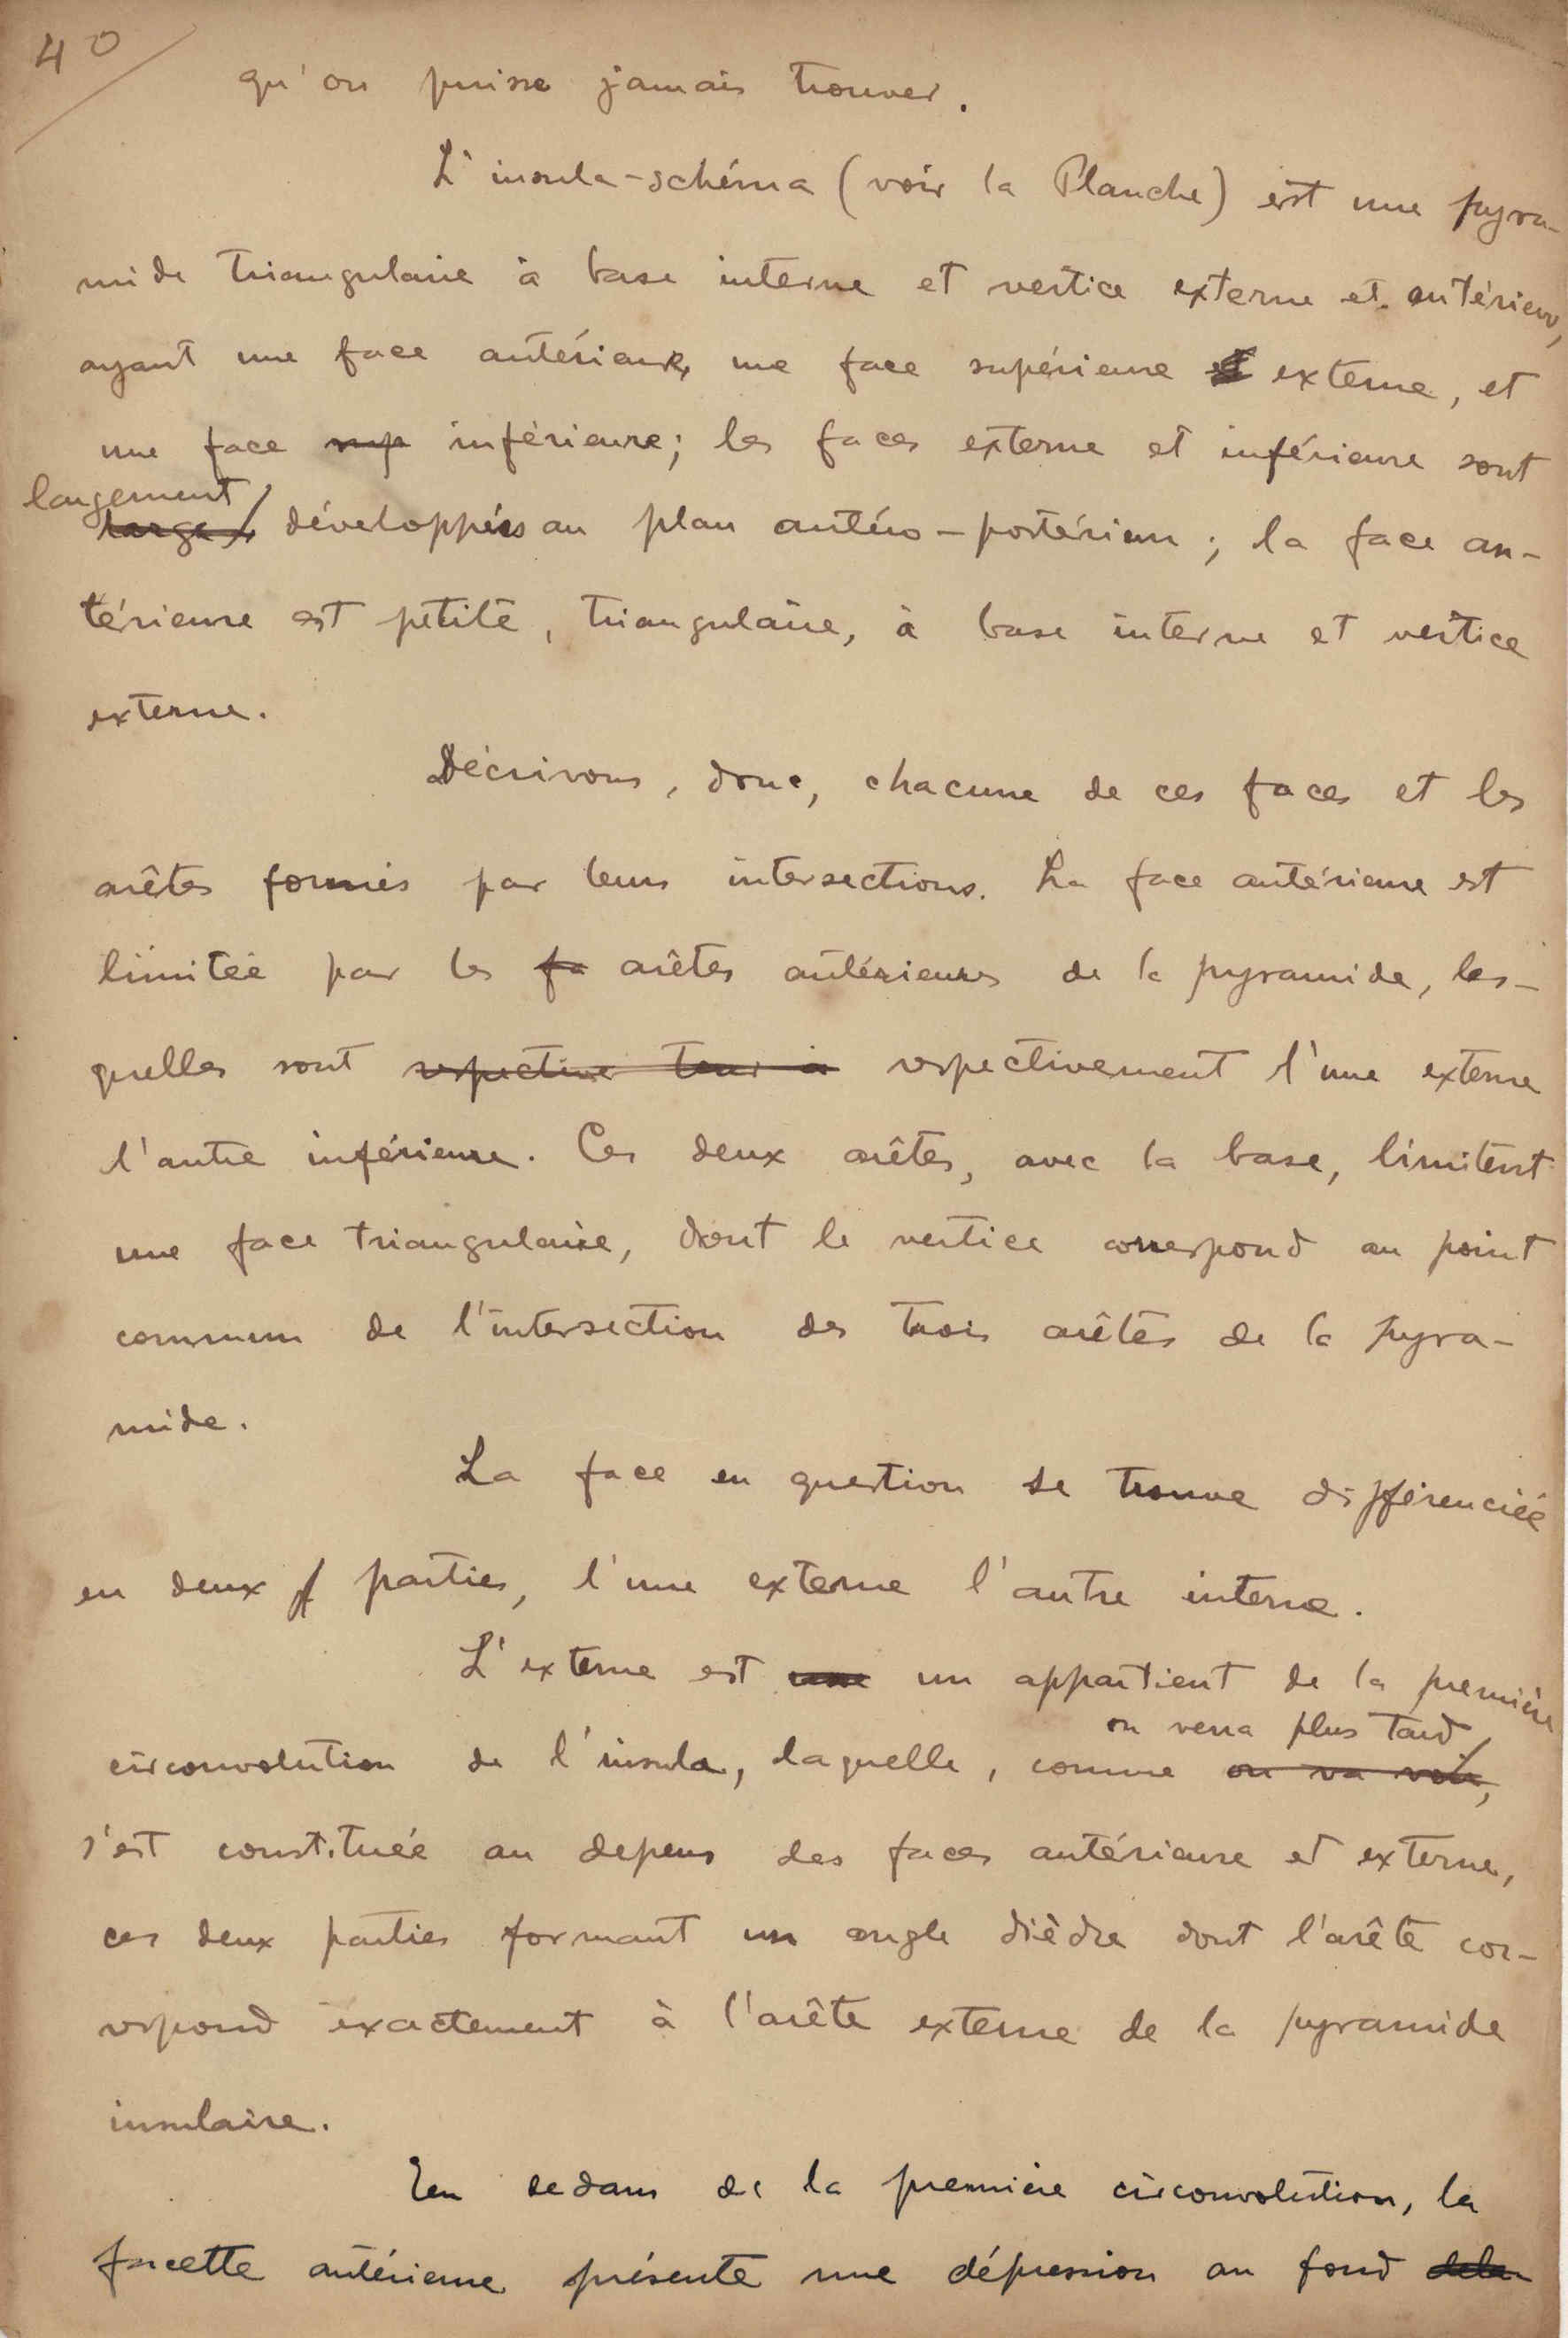 40
qu'on puisse jamais trouver.
L'insula-schéma (voir la Planche) est une pyra-
mide triangulaire à base interne et vertice externe et antérieur,
ayant une face antérieure, une face supérieure et externe, et
une face sup inférieure; les faces externe et inférieure sont
largement
larges développées au plan antéro-postérieur; la face an-
térieure est petite, triangulaire, à base interne et vertice
externe.
Décrivons, donc, chacune de ces faces et les
arêtes formées par leurs intersections. La face antérieure est
limitée par les fa arêtes antérieures de la pyramide, les-
quelles sont respectivement l'une externe
l'autre inférieure. Ces deux arêtes, avec la base, limitent
une face triangulaire, dont le vertice correspond au point
commun de l'intersection des trois arêtes de la pyra-
mide.
La face en question se trouve différenciée
en deux f parties, l'une externe l'autre interne.
L'externe est une un appartient de la première
on verra plus tard
circonvolution de l'insula, laquelle, comme on va voir,
s'est constituée au depens des faces antérieure et externe,
ces deux parties formant un angle dièdre dont l'arête cor-
respond exactement à l'arête externe de la pyramide
insulaire.
En dedans de la première circonvolution, la
facette antérieure présente une dépression au fond de la